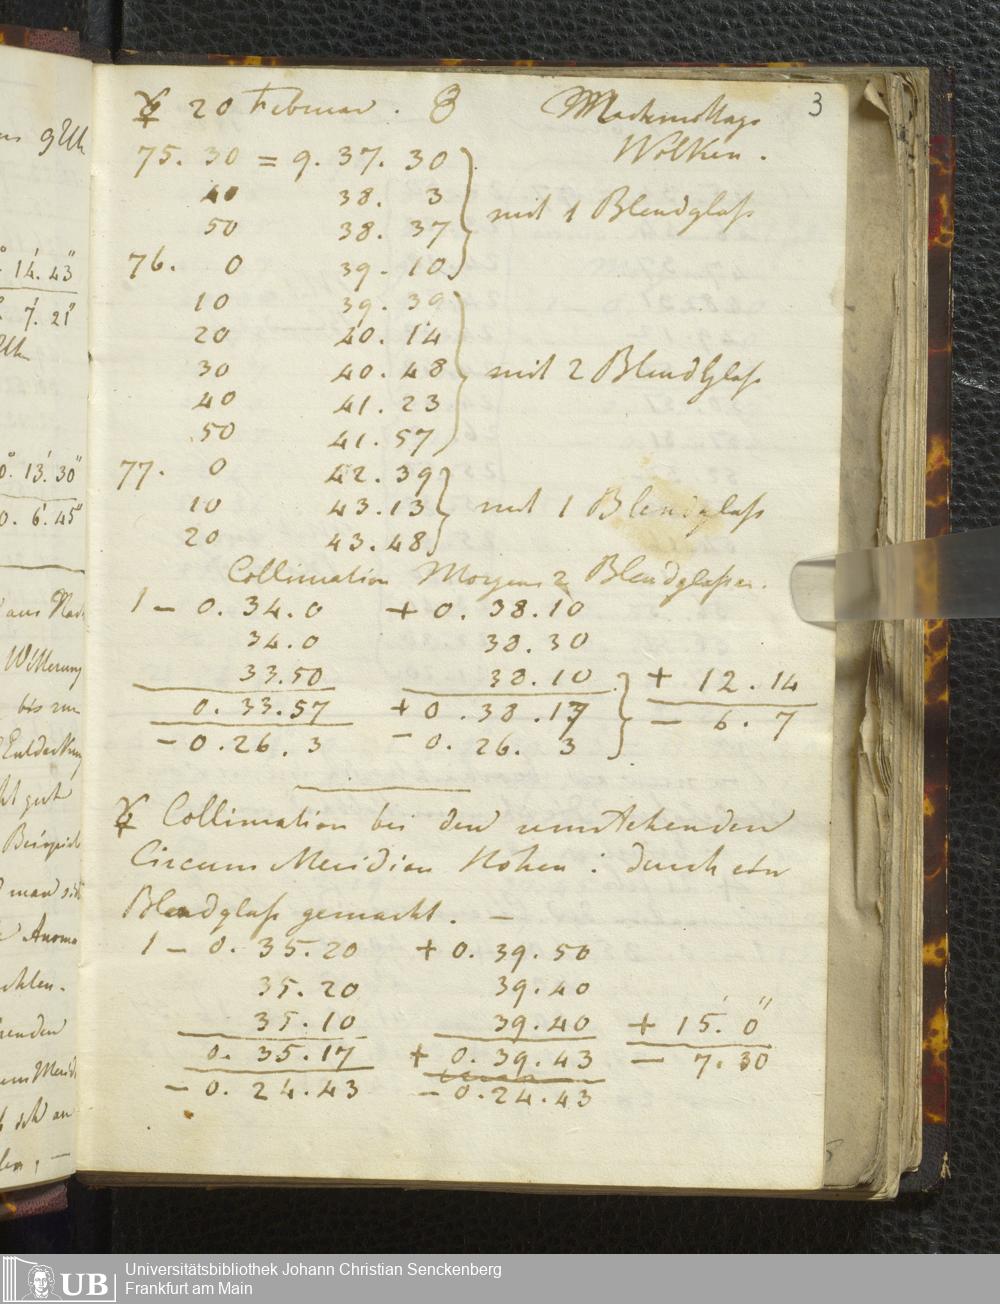 3
20 Februar. 8 Nachmittags
Wolken.
75. 30 = 9. 37. 30
40 38. 3
50 38. 37
mit 1 Blendglaß
76. 0 39. 10
10 39. 39
20 40. 14
30 40. 48
mit 2 Blendglaß
40 41. 23
50 41. 57
77. 0 42. 39
10 43. 13
mit 1 Blendglaß
20 43. 48
Collimation Morgens 2 Blendglaßer.
1 − 0. 34. 0 + 0. 38. 10
34. 0 38. 30
33. 50 38. 10 + 12. 14
0. 33. 57 + 0. 38. 17 − 6. 7
− 0. 26. 3 − 0. 26. 3
Collimation bei den umstehenden
Circum Meridian Höhen: durch ein
Blendglaß gemacht. —
1 − 0. 35. 20 + 0. 39. 50
35. 20 39. 40
35. 10 39. 40 + 15.′ 0″
0. 35. 17 + 0. 39. 43 − 7. 30
− 0. 24. 43 − 0. 24. 43
14.′ 43″
7.′ 21″
0.° 13.′ 30″
0. 6.′ 45″
Witterung
bis zu
gut
UB
Universitätsbibliothek Johann Christian Senckenberg
Frankfurt am Main